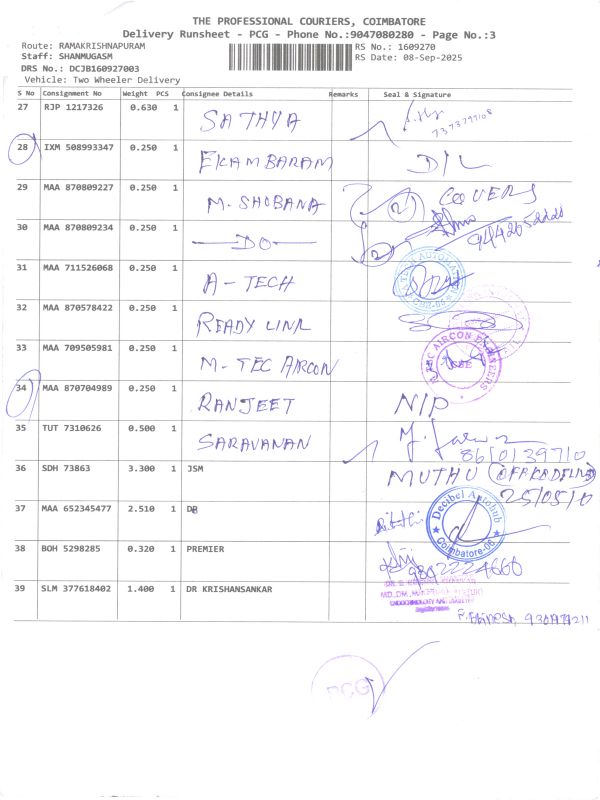 THE PROFESSIONAL COURIERS, COIMBATORE
Delivery Runsheet - PCG - Phone No.:9047080280 - Page No.:3
Route: RAMAKRISHNAPURAM RS No.: 1609270
Staff: SHANMUGASM RS Date: 08-Sep-2025
DRS No.: DCJB160927003
Vehicle: Two Wheeler Delivery
S No Consignment No Weight PCS Consignee Details Remarks Seal & Signature
27 RJP 1217326 0.630 1 SATHYA
28 IXM 508993347 0.250 1 EKAMBARAM D/L
29 MAA 870809227 0.250 1 M. SHOBANA 2 COVERS
30 MAA 870809234 0.250 1 —DO— 2
31 MAA 711526068 0.250 1 A-TECH
32 MAA 870578422 0.250 1 READY LINK
33 MAA 709505981 0.250 1 M-TEC AIRCON
34 MAA 870704989 0.250 1 RANJEET N/P
35 TUT 7310626 0.500 1 SARAVANAN
36 SDH 73863 3.300 1 JSM MUTHU
37 MAA 652345477 2.510 1 DB Decibel Autohub Coimbatore-06
38 BOH 5298285 0.320 1 PREMIER
39 SLM 377618402 1.400 1 DR KRISHANSANKAR
PCG